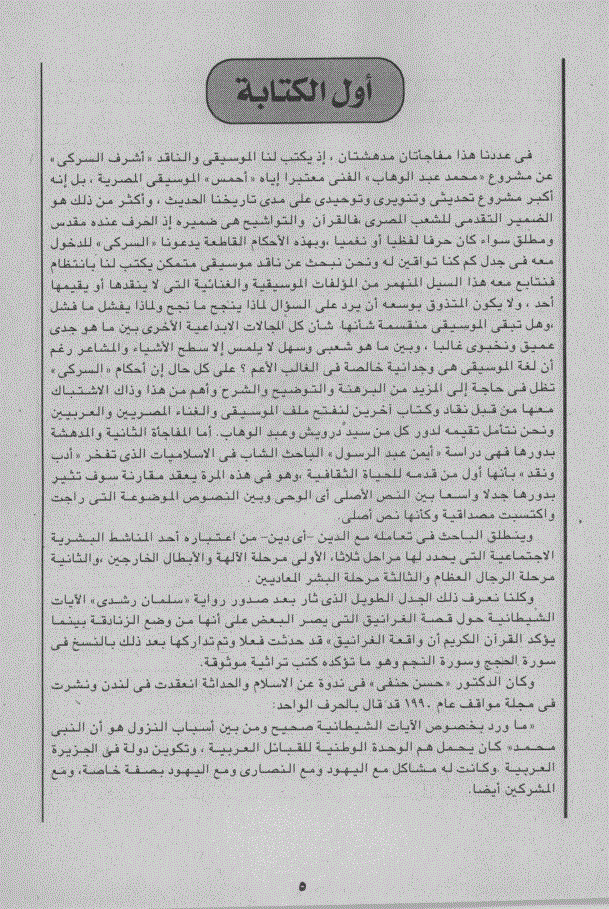 أول الكتابة
فى عددنا هذا مفاجأتان مدهشتان ، إذ يكتب لنا الموسيقى والناقد «أشرف السركى»
عن مشروع «محمد عبد الوهاب» الفنى معتبرا إياه «أحمس» الموسيقى المصرية ، بل إنه
أكبر مشروع تحديثى وتنويرى وتوحيدى على مدى تاريخنا الحديث ، وأكثر من ذلك هو
الضمير التقدمى للشعب المصرى ،فالقرآن والتواشيح هى ضميره إذ الحرف عنده مقدس
ومطلق سواء كان حرفا لفظيا أو نغميا ،وبهذه الأحكام القاطعة يدعونا «السركى» للدخول
معه فى جدل كم كنا تواقين له ونحن نبحث عن ناقد موسيقى متمكن يكتب لنا بانتظام
فنتابع معه هذا السيل المنهمر من المؤلفات الموسيقية والغنائية التى لا ينقدها أو يقيمها
أحد ، ولا يكون المتذوق بوسعه أن يرد على السؤال لماذا ينجح ما نجح ولماذا يفشل ما فشل
،وهل تبقى الموسيقى منقسمة شأنها. شأن كل المجالات الابداعية الأخرى بين ما هو جدى
عميق ونخبوى غالبا ، وبين ما هو شعبى وسهل لا يلمس إلا سطح الأشياء والمشاعر رغم
أن لغة الموسيقى هى وجدانية خالصة فى الغالب الأعم ؟ على كل حال إن أحكام «السركى»
تظل فى حاجة إلى المزيد من البرهنة والتوضيح والشرح وأهم من هذا وذاك الاشتباك
معها من قبل نقاد وكتاب آخرين لنفتح ملف الموسيقى والغناء المصريين والعربيين
ونحن نتأمل تقيمه لدور كل من سيد درويش وعبد الوهاب. أما المفاجأة الثانية والمدهشة
بدورها فهى دراسة «أيمن عبد الرسول» الباحث الشاب فى الاسلاميات الذى تفخر «أدب
ونقد» بأنها أول من قدمه للحياة الثقافية ،وهو فى هذه المرة يعقد مقارنة سوف تثير
بدورها جدلا واسعا بين النص الأصلى أى الوحى وبين النصوص الموضوعة التى راجت
واكتسبت مصداقية وكأنها نص أصلى.
وينطلق الباحث فى تعامله مع الدين -أى دين- من اعتباره أحد المناشط البشرية
الاجتماعية التى يحدد لها مراحل ثلاثا، الأولى مرحلة الآلهة والأبطال الخارجين ،والثانية
مرحلة الرجال العظام والثالثة مرحلة البشر العاديين .
وكلنا نعرف ذلك الجدل الطويل الذى ثار بعد صدور رواية «سلمان رشدى» الآيات
الشيطانية حول قصة الغرانيق التى يصر البعض على أنها من وضع الزنادقة بينما
يؤكد القرآن الكريم أن واقعة الغرانيق» قد حدثت فعلا وتم تداركها بعد ذلك بالنسخ فى
سورة الحجج وسورة النجم وهو ما تؤكده كتب تراثية موثوقة.
وكان الدكتور «حسن حنفى» فى ندوة عن الاسلام والحداثة انعقدت فى لندن ونشرت
فى مجلة مواقف عام ١٩٩٠ قد قال بالحرف الواحد:
«ما ورد بخصوص الآيات الشيطانية صحيح ومن بين أسباب النزول هو أن النبى
محمد» كان يحمل هم الوحدة الوطنية للقبائل العربية ، وتكوين دولة فى الجزيرة
العربية .وكانت له مشاكل مع اليهود ومع النصارى ومع اليهود بصفة خاصة، ومع
المشركين أيضا.
٥